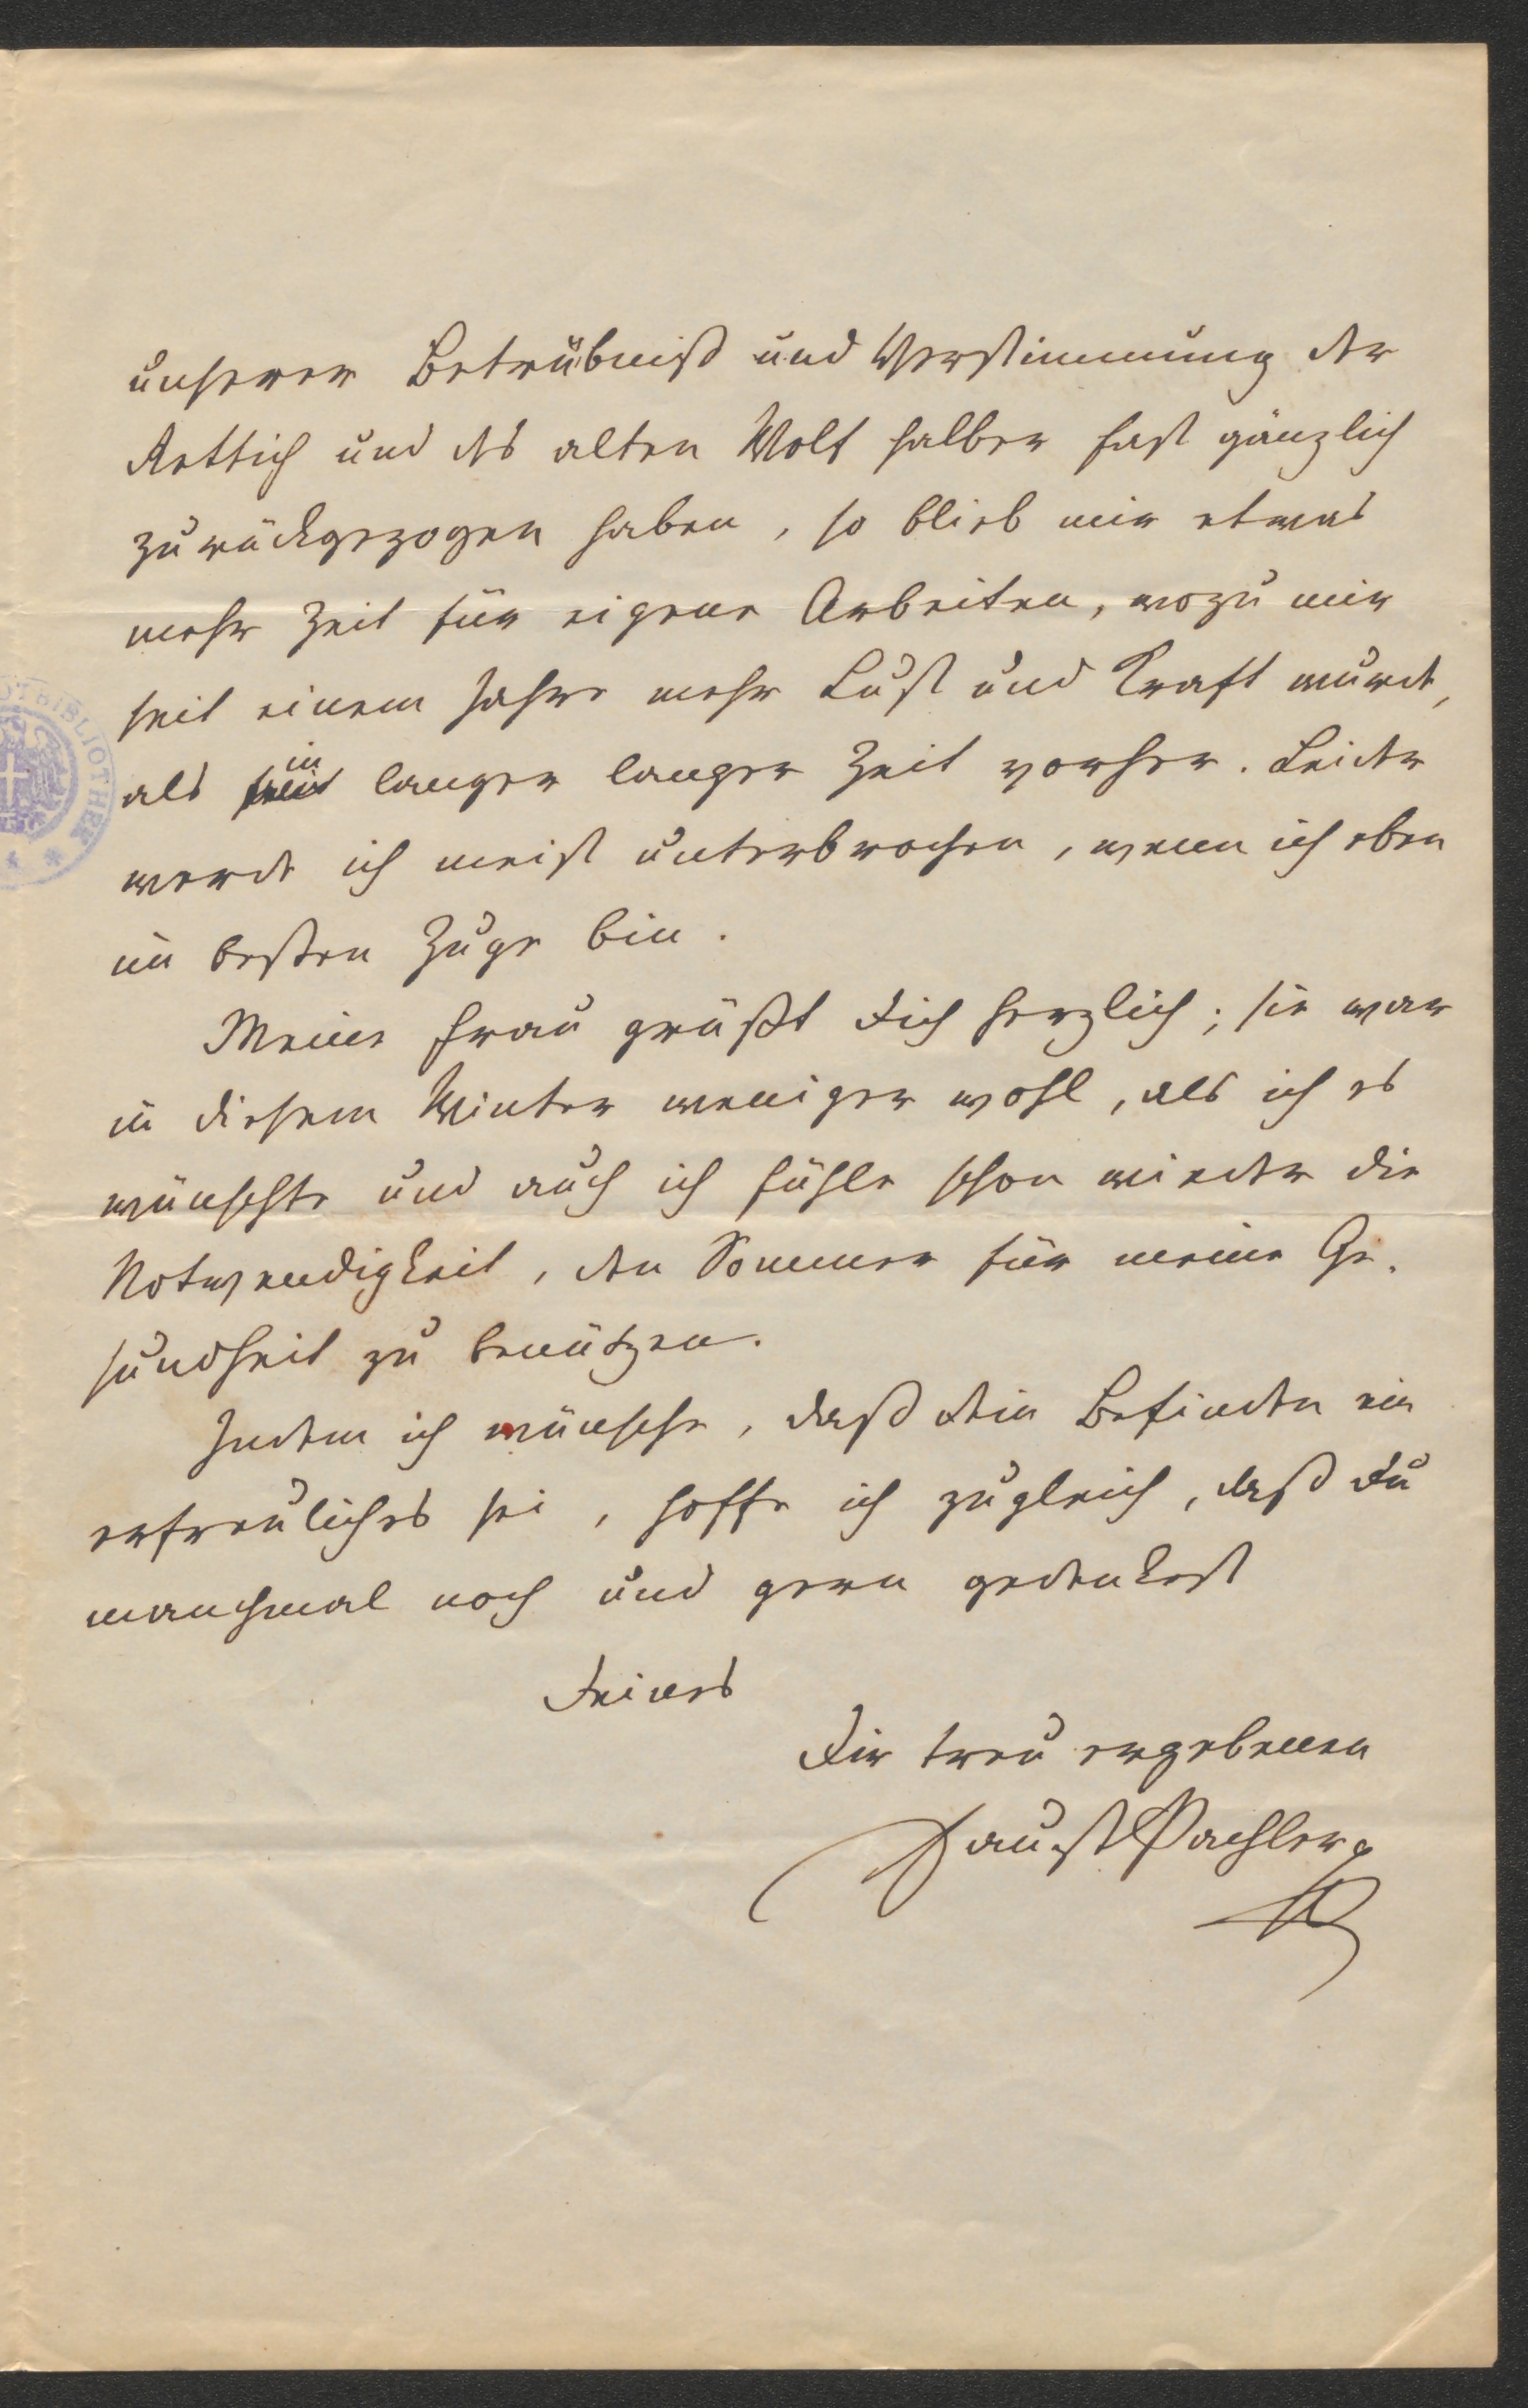 unserer Betrübniß und Verstimmung der
Rettich und des alten Wolf halber fast gänzlich
zurückgezogen haben, so blieb mir etwas
mehr Zeit für eigene Arbeiten, wozu mir
seit einem Jahre mehr Lust und Kraft wurde,
als in langer langer Zeit vorher. Leider
werde ich meist unterbrochen, wenn ich eben
im besten Zuge bin.
Meine Frau grüßt dich herzlich; sie war
in diesem Winter weniger wohl, als ich es
wünschte und auch ich fühle schon wieder die
Notwendigkeit, den Sommer für meine Ge-
sundheit zu benützen.
Indem ich wünsche, daß dein Befinden ein
erfreuliches sei, hoffe ich zugleich, daß du
manchmal noch und gern gedenkest
Deines
Dir treu ergebenen
Faust Pachler